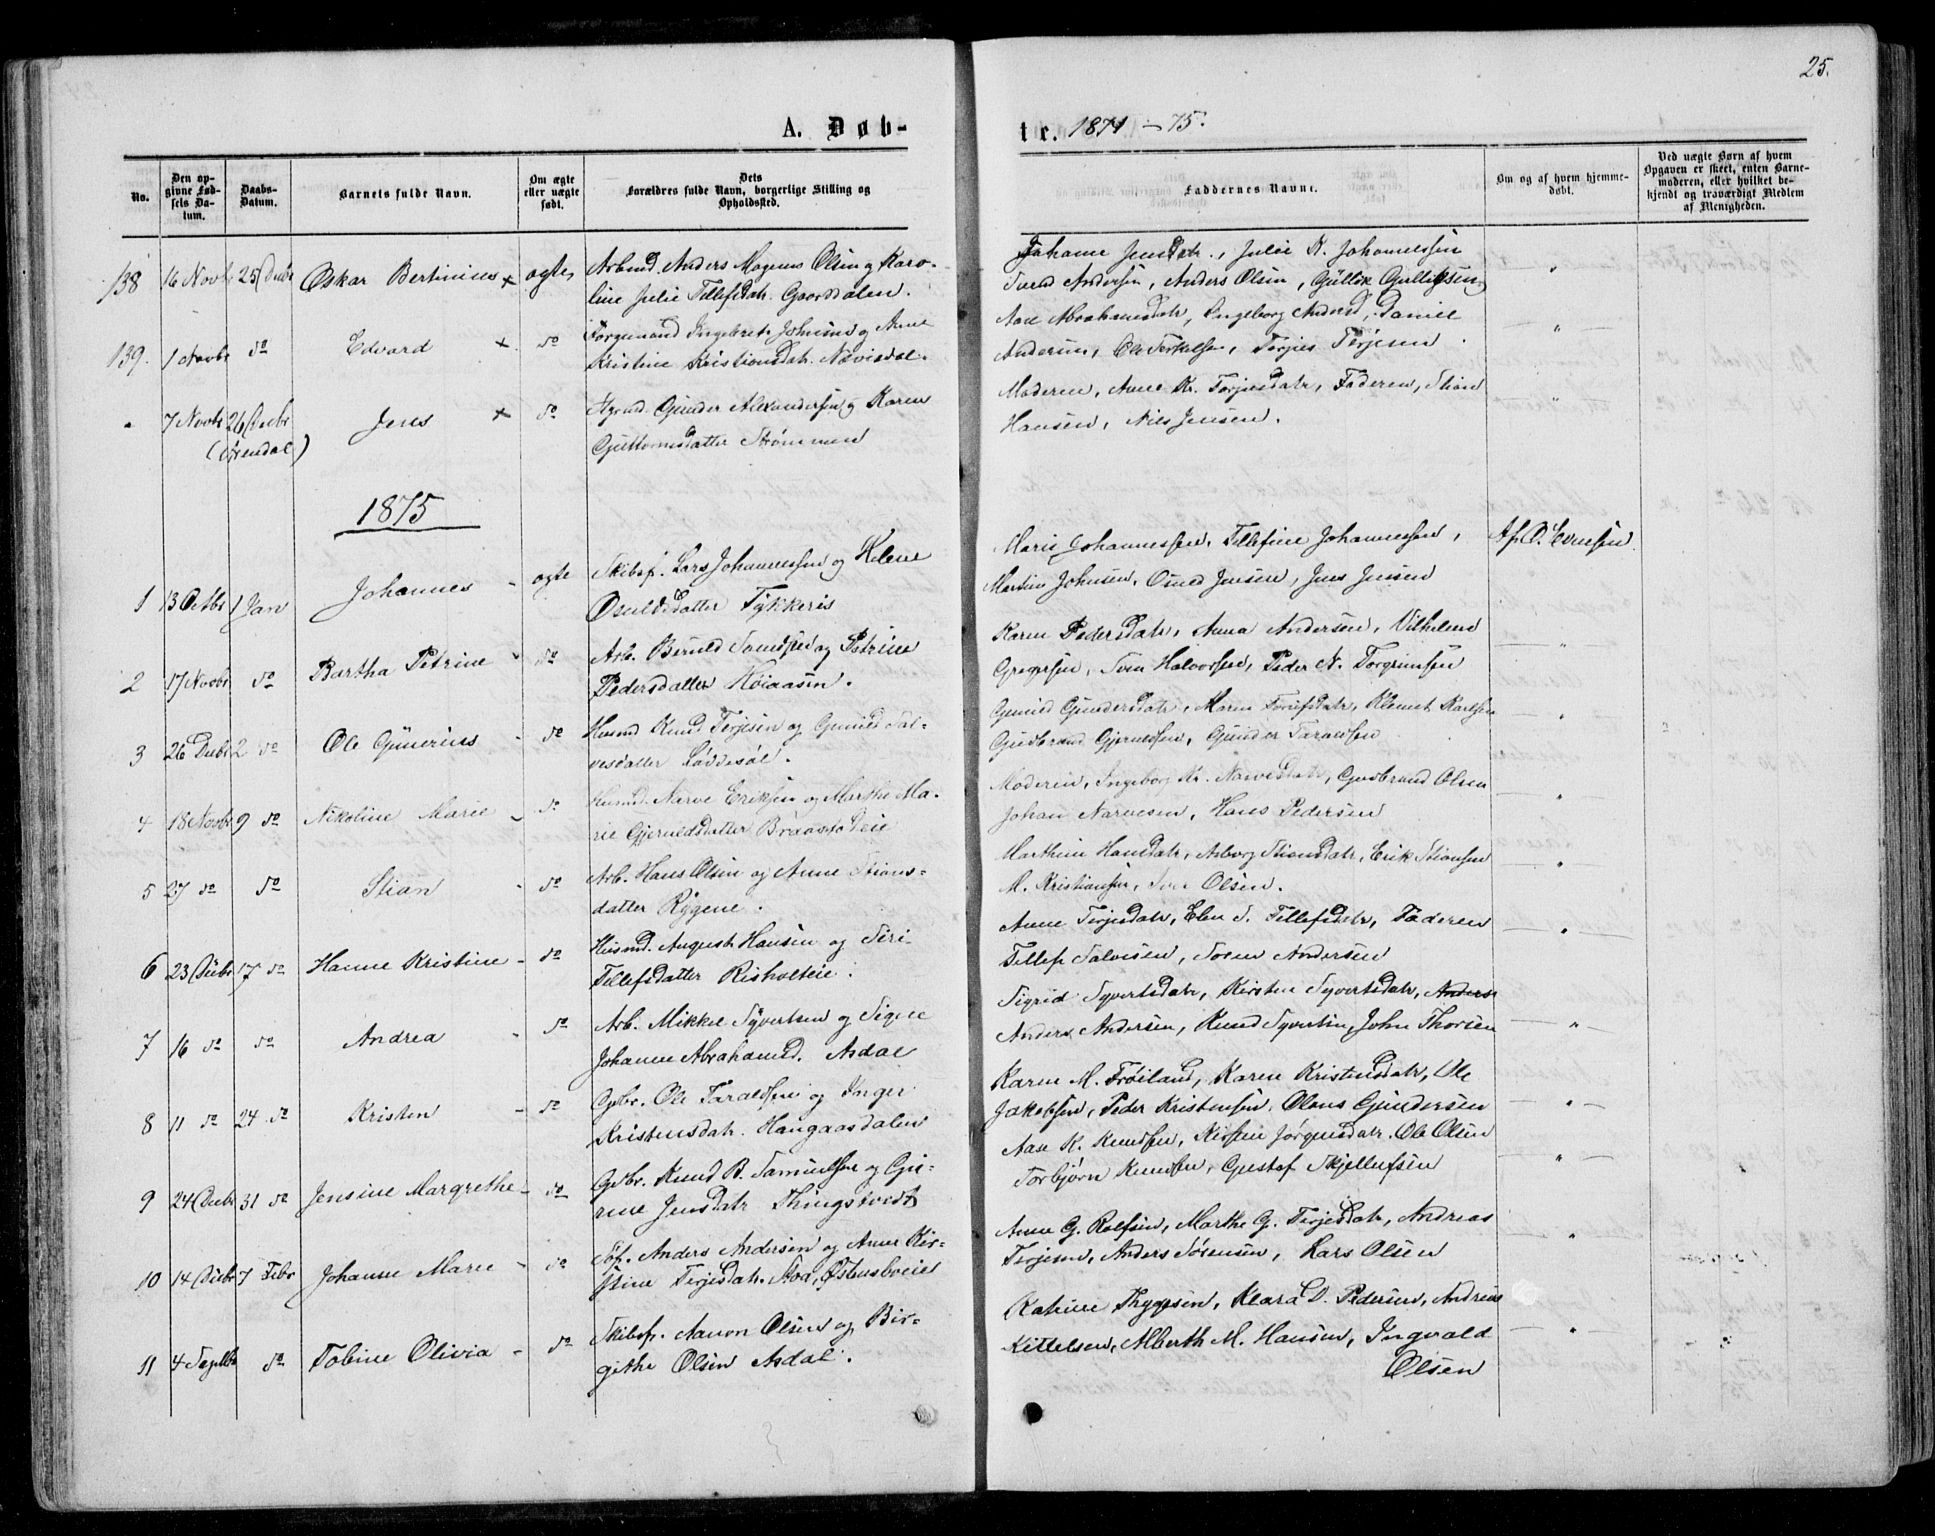 25.
A. Døb-
te. 1874-75.
No.
Den op-
givne Fød-
sels Da-
tum.
Daabs-
Datum.
Barnets fulde Navn.
Om ægte
eller uægte
født.
Dets
Forældres fulde Navn, borgerlige Stilling og
Opholdssted.
Faddernes Navne.
Om og af hvem hjemme-
døbt.
Ved uægte Børn af hvem
Opgaven er skeet, enten Barne-
moderen, eller hvilket be-
kjendt og troværdigt Medlem
af Menigheden.
138 16 Novbr 25 Decbr Oskar Bertinius × ægte, Arbmd. Anders Magnus Olsen og Karo-
line Julie Tellefsdatr.
Johanne Jensdatr., Julie K. Johannessen
Svend Andersen, Anders Olsen, Gullik Gulliksen,
139. 1 Novbr do Edvard × do Ingebret Johnsen og Anne
Kristine Kristiansdatr.
Aase Abrahamsdatr, Ingeborg Andersd, Daniel
Andersen, Ole Terkelsen, Terjes Terjesen
7 Novbr 26 Decbr Jens × do Gunder Alexandersen og Karen
(Arendal)
Guttormsdatter Strømmen
Moderen, Anne Kr. Torjusdatr, Faderen, Stian
Hansen, Nils Jensen.
1875
1 13 Octbr 1 Jan Johannes - ægte Skibsf. Lars Johannessen og Helene
Osuldsdatter
Marie Johannessen, Tellefine Johannessen, Af O. Evensen.
Martin Johnsen, Osmd Jensen, Jens Jensen
2 17 Novbr do Bertha Petrine - do Arb. Beruld Svendsen og Petrine
Pedersdatter Høiaasen.
Karen Pedersdatr, Anna Andersen, Vilhelm
Gregersen, Sven Halvorsen, Peder N. Torgrimsen
3 26 Decbr 2 do Ole Gunerius - do Husmd Knud Terjesen og Gunild Sal-
vesdatter Løddesøl.
Gunild Gundersdatr, Maren Torufsdatr, Klemet Karlsen
Gudbrand Gjeruldsen, Gunder Taraldsen
4 18 Novbr 9 do Nikoline Marie - do Husmd. Narve Eriksen og Marthe Ma-
rie Gjeruldsdatter Braastadeie
Moderen, Ingeborg Kr. Narvesdatr, Gudbrand Olsen
Johan Narvesen, Hans Pedersen
5 27 do do Stian - do Arb. Hans Olsen og Anne Stians-
datter Rygene.
Marthine Hansdatr, Asborg Stiansdatr, Erik Stiansen
M. Kristiansen, Olsen.
6 23 Decbr 17 do Hanne Kristine - do Husmd. August Hansen og Siri
Tellefsdatter Risholteie.
Anne Terjesdatr, Elen S. Tellefsdatr, Faderen
Tellef Salvesen, Søren Andersen
7 16 do do Andrea - do Arb. Mikkel Syvertsen og Signe
Johanne Abrahamsd. Asdal
Sigrid Syvertsdatr, Kirsten Syvertsdatr, Anders
Anders Andersen, Knud Syvertsen, John Thorsen
8 11 do 24 do Kristen - do Gbr. Ole Taraldsen og Inger
Kristensdatr. Haugaasdalen
Karen M. Frøiland, Karen Kristensdatr, Ole
Jakobsen, Peder Kristensen, Olaus Gundersen
9 24 Decbr 31 do Jensine Margrethe - do Gbr. Knud B. Samuelsen og Gu-
rine Jensdatr Thingstvedt
Aase K. Knudsen, Kirsten Jørgensdatr. Ole Olsen
Torbjørn Knudsen, Gustaf Skjellufsen
10 14 Decbr 7 Febr Johanne Marie - do Anders Andersen og Anne Kir-
stine Terjesdatr. Stoa, Østensbueiet
Anne G. Rolfsen, Marthe G. Terjesdatr, Andreas
Terjesen, Anders Sørensen, Lars Olsen
11 4 Septbr do Tobine Olivia - do Skibsf. Aanon Olsen og Bir-
githe Olsen Asdal.
Katrine Thygesen, Klara D. Pedersen, Andreas
Kittelsen, Alberth M. Hansen, Ingvald
Olsen